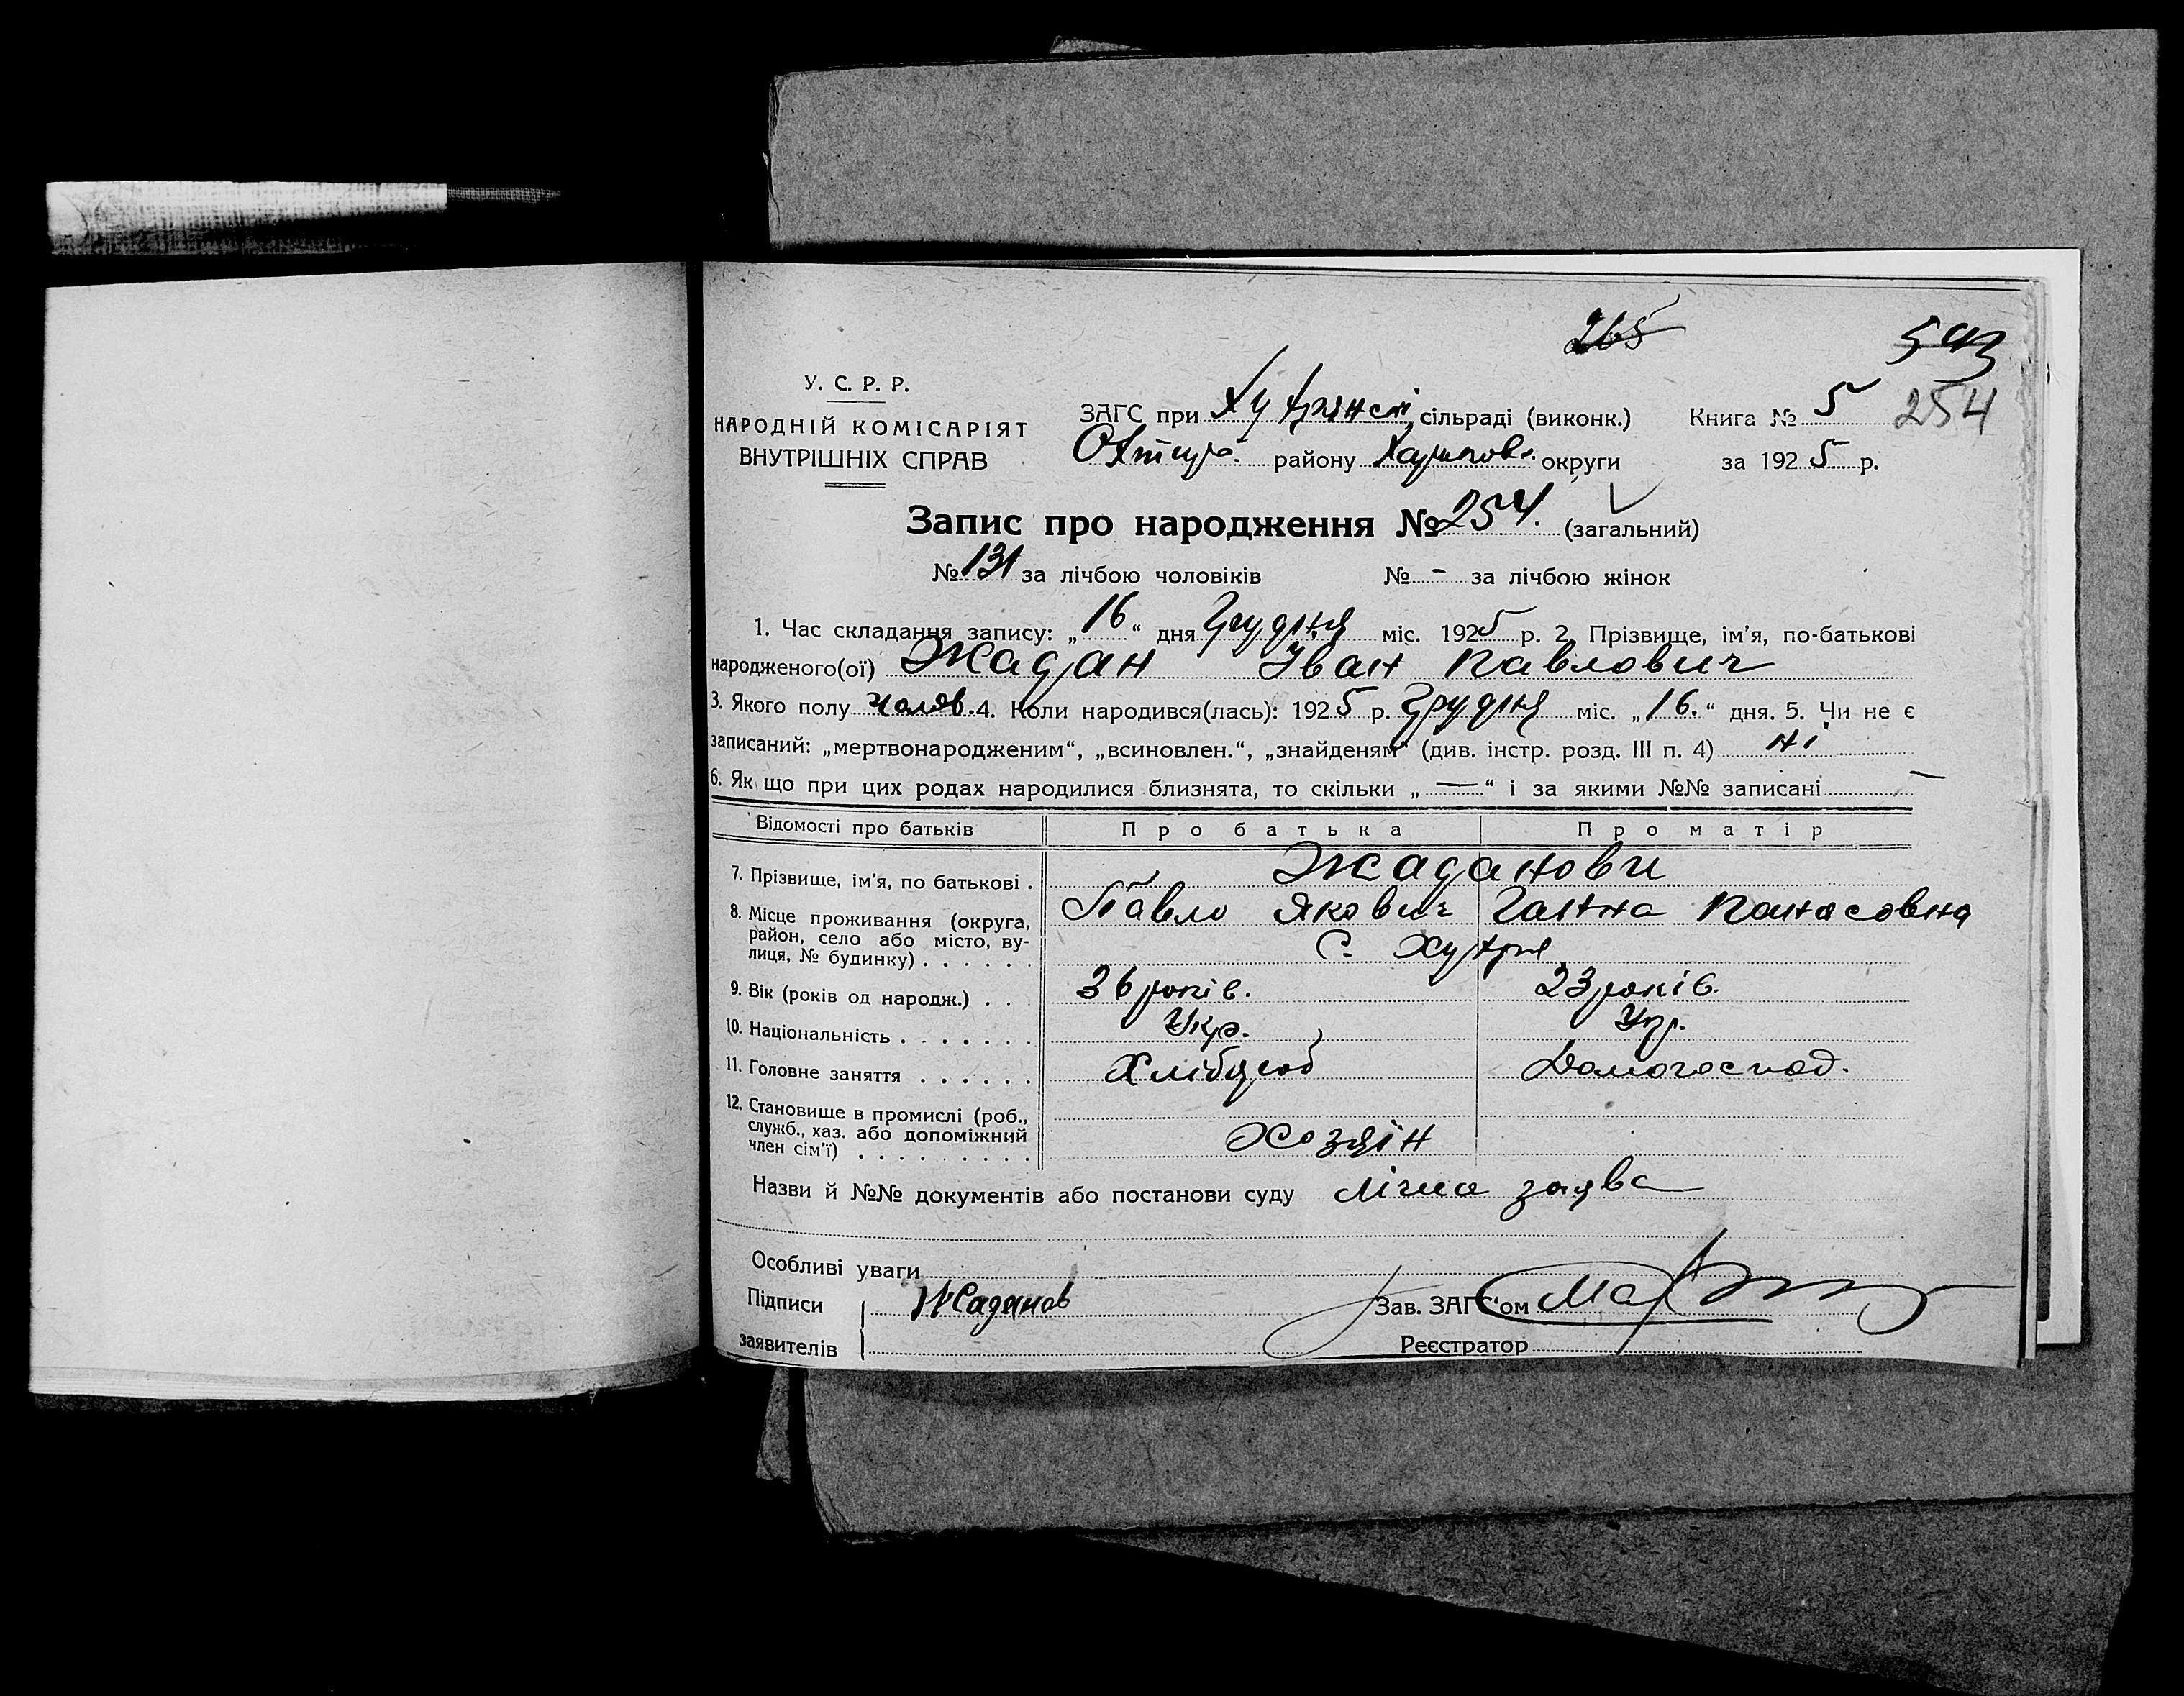 265
593
У. С. Р. Р.
НАРОДНІЙ КОМІСАРІЯТ
ВНУТРІШНІХ СПРАВ
ЗАГС при Хутрянскі сільраді (виконк.) Книга № 5 254
Охтир. району Харьков. округи за 1925 р.
Запис про народження № 254. (загальний)
№ 131 за лічбою чоловіків № - за лічбою жінок
1. Час складання запису: „16“ дня Грудня міс. 1925 р. 2. Прізвище, ім'я, по-батькові
народженого(ої) Жадан Іван Павлович
3. Якого полу чолов. 4. Коли народився(лась): 1925 р. Грудня міс. „16.“ дня. 5. Чи не є
записаний: „мертвонародженим“, „всиновлен.“, „знайденям“ (див. інстр. розд. III п. 4) ні
6. Як що при цих родах народилися близнята, то скільки „—“ і за якими №№ записані —
Відомості про батьків Про батька Про матір
7. Прізвище, ім'я, по батькові . Жаданови
Павло Якович Ганна Панасовна
8. Місце проживання (округа, район, село або місто, вулиця, № будинку) . . . . . . с. Хутря
9. Вік (років од народж.) . . 36 років. 23 років.
10. Національність . . . . . . . Укр. Укр.
11. Головне заняття . . . . . . Хлібороб Домогоспод.
12. Становище в промислі (роб., служб., хаз. або допоміжний член сім'ї) . . . . . . . . . Хозяін
Назви й №№ документів або постанови суду лічна заява
Особливі уваги
Підписи Жаданов Зав. ЗАГС'ом
заявителів Реєстратор